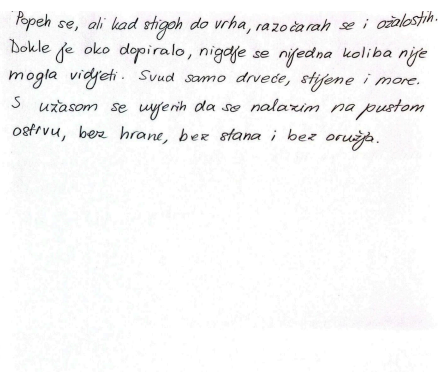 Popeh se, ali kad stigoh do vrha, razočarah se i ožalostih.
Dokle je oko dopiralo, nigdje se nijedna koliba nije
mogla vidjeti. Svud samo drveće, stijene i more.
S užasom se uvjerih da se nalazim na pustom
ostrvu, bez hrane, bez stana i bez oružja.